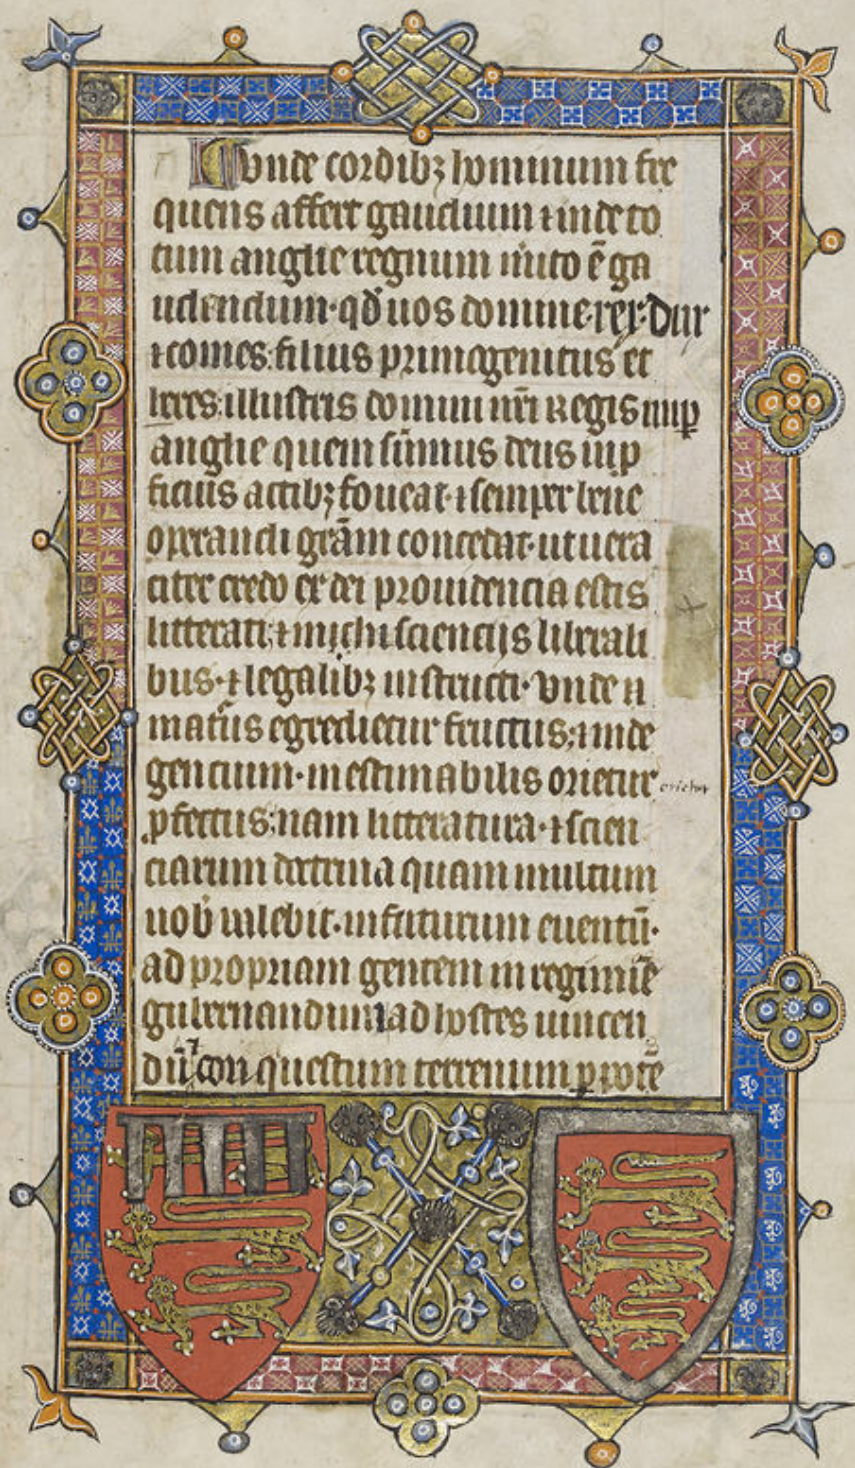 Unde cordibꝫ hominum fre
quens affert gaudium ⁊ inde to
tum anglie regnum m̄ito ē ga
udendum·qd̄ uos domine·rex·dux
⁊ comes·filius primogenitus et
heres·illustris domini nr̄i Regis
anglie quem sūmus deus
ficiis actibꝫ foueat·⁊ semper bene
operandi grām concedat·ut uera
citer credo ex dei prouidencia estis
litterati·⁊ michi sciencijs liberali
bus·⁊ legalibꝫ instructi·vnde n
egredietur fructus;⁊ inde
gencium·inestimabilis orietur
ꝓfectus;nam litteratura·⁊ scien
ciarum doctrina quam multum
uob̄ ualebit·in futurum euentū·
ad propriam gentem in regimīe
gubernandum ad hostes uincen
dū ⁊ con questum terrenum